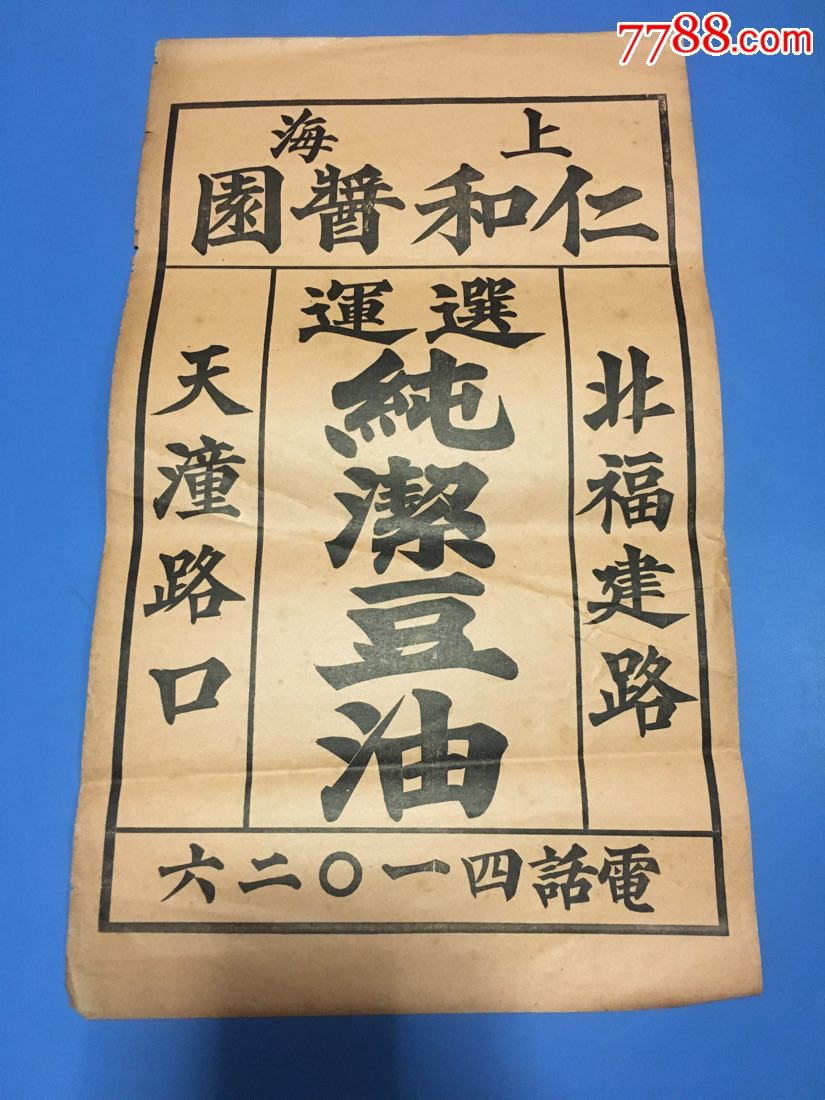 7788.com
上海
仁和醬園
北福建路
選運
純潔豆油
天潼路口
電話四一〇二六